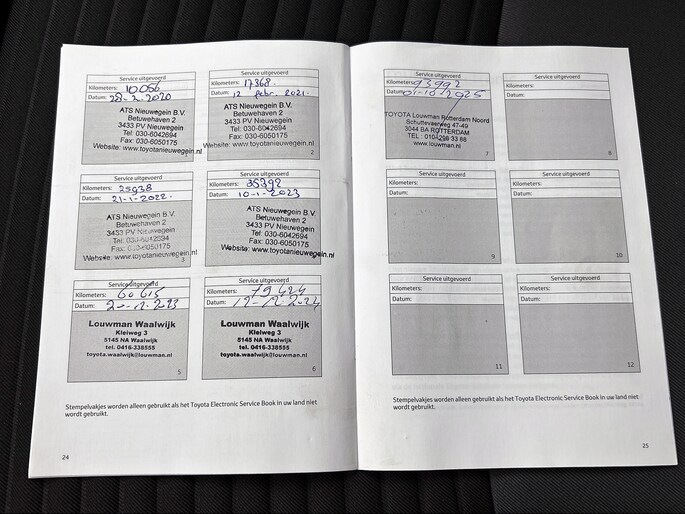 Service uitgevoerd
Kilometers: 10056
Datum: 28-2-2020
ATS Nieuwegein B.V.
Betuwehaven 2
3433 PV Nieuwegein
Tel: 030-6042694
Fax: 030-6050175
Website: www.toyotanieuwegein.nl
Service uitgevoerd
Kilometers: 17368.
Datum: 12 febr. 2021.
ATS Nieuwegein B.V.
Betuwehaven 2
3433 PV Nieuwegein
Tel: 030-6042694
Fax: 030-6050175
Website: www.toyotanieuwegein.nl
2
Service uitgevoerd
Kilometers: 25938
Datum: 21-1-2022.
ATS Nieuwegein B.V.
Betuwehaven 2
3433 PV Nieuwegein
Tel: 030-6042694
Fax: 030-6050175
Website: www.toyotanieuwegein.nl
3
Service uitgevoerd
Kilometers: 35792
Datum: 10-1-2023
ATS Nieuwegein B.V.
Betuwehaven 2
3433 PV Nieuwegein
Tel: 030-6042694
Fax: 030-6050175
Website: www.toyotanieuwegein.nl
Service uitgevoerd
Kilometers: 60615
Datum: 20-12-2023
Louwman Waalwijk
Kleiweg 3
5145 NA Waalwijk
tel. 0416-338555
toyota.waalwijk@louwman.nl
5
Service uitgevoerd
Kilometers: 79424
Datum: 17-12-2024
Louwman Waalwijk
Kleiweg 3
5145 NA Waalwijk
tel. 0416-338555
toyota.waalwijk@louwman.nl
6
Stempelvakjes worden alleen gebruikt als het Toyota Electronic Service Book in uw land niet
wordt gebruikt.
24
Service uitgevoerd
Kilometers: 93992
Datum: 01-10-2025
TOYOTA Louwman Rotterdam Noord
Schuttevaerweg 47-49
3044 BA ROTTERDAM
TEL.: 010-298 33 88
www.louwman.nl
7
Service uitgevoerd
Kilometers:
Datum:
8
Service uitgevoerd
Kilometers:
Datum:
9
Service uitgevoerd
Kilometers:
Datum:
10
Service uitgevoerd
Kilometers:
Datum:
11
Service uitgevoerd
Kilometers:
Datum:
12
Stempelvakjes worden alleen gebruikt als het Toyota Electronic Service Book in uw land niet
wordt gebruikt.
25